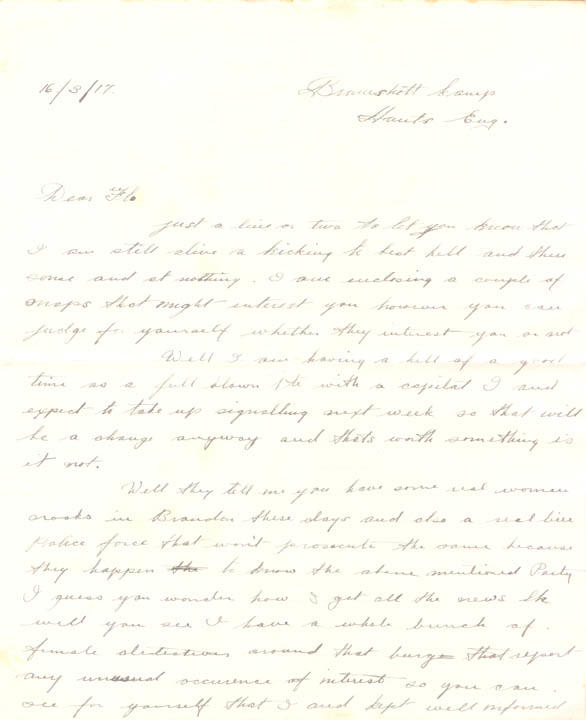 16/3/17.
Bramshott Camp
Hants Eng.
Dear Flo
just a line or two to let you know that
I am still alive a kicking to beat hell and then
some and at nothing. I am enclosing a couple of
snaps that might interest you however you can
judge for yourself whether they interest you or not
Well I am having a hell of a good
time as a full blown Pte with a capital P and
expect to take up signalling next week so that will
be a change anyway and thats worth something is
it not.
Well they tell me you have some real women
crooks in Brandon these days and also a real live
Police force that won't prosecute the same because
they happen the to know the above mentioned Party
I guess you wonder how I get all the news Eh
well you see I have a whole bunch of
female detectives around that burge that report
any unusual occurence of interest so you can
see for yourself that I and kept well informed